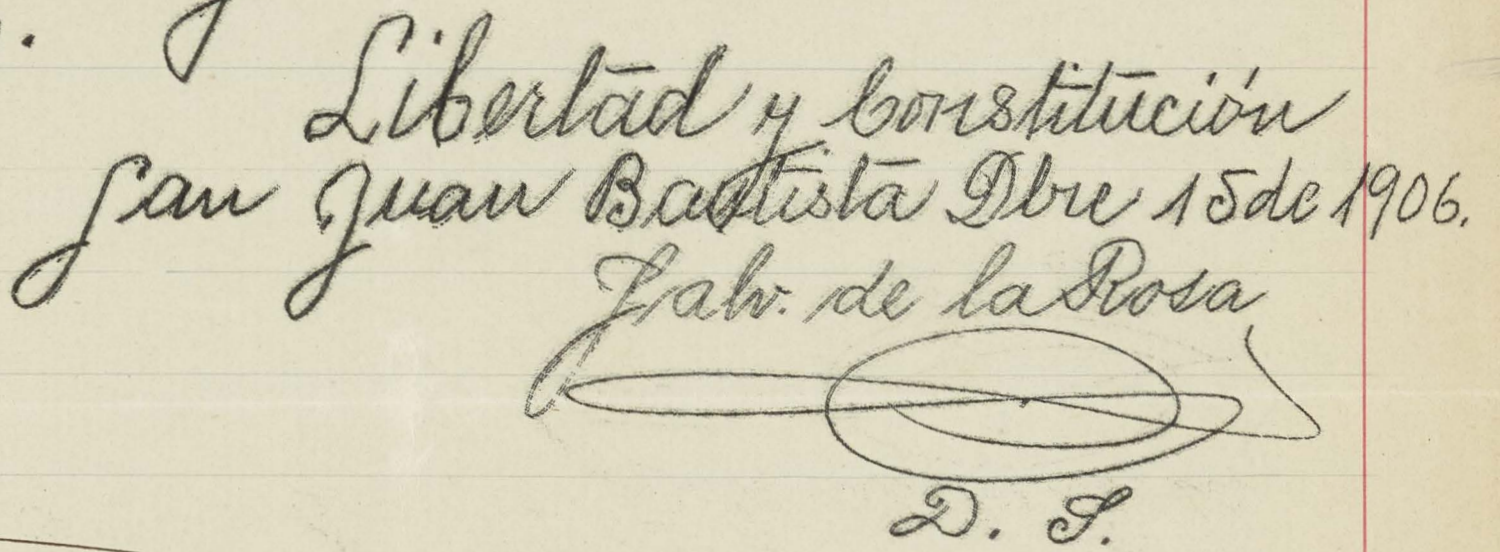 Libertad y Constitución
San Juan Bautista Dbre 15 de 1906.
Salv. de la Rosa
D. S.